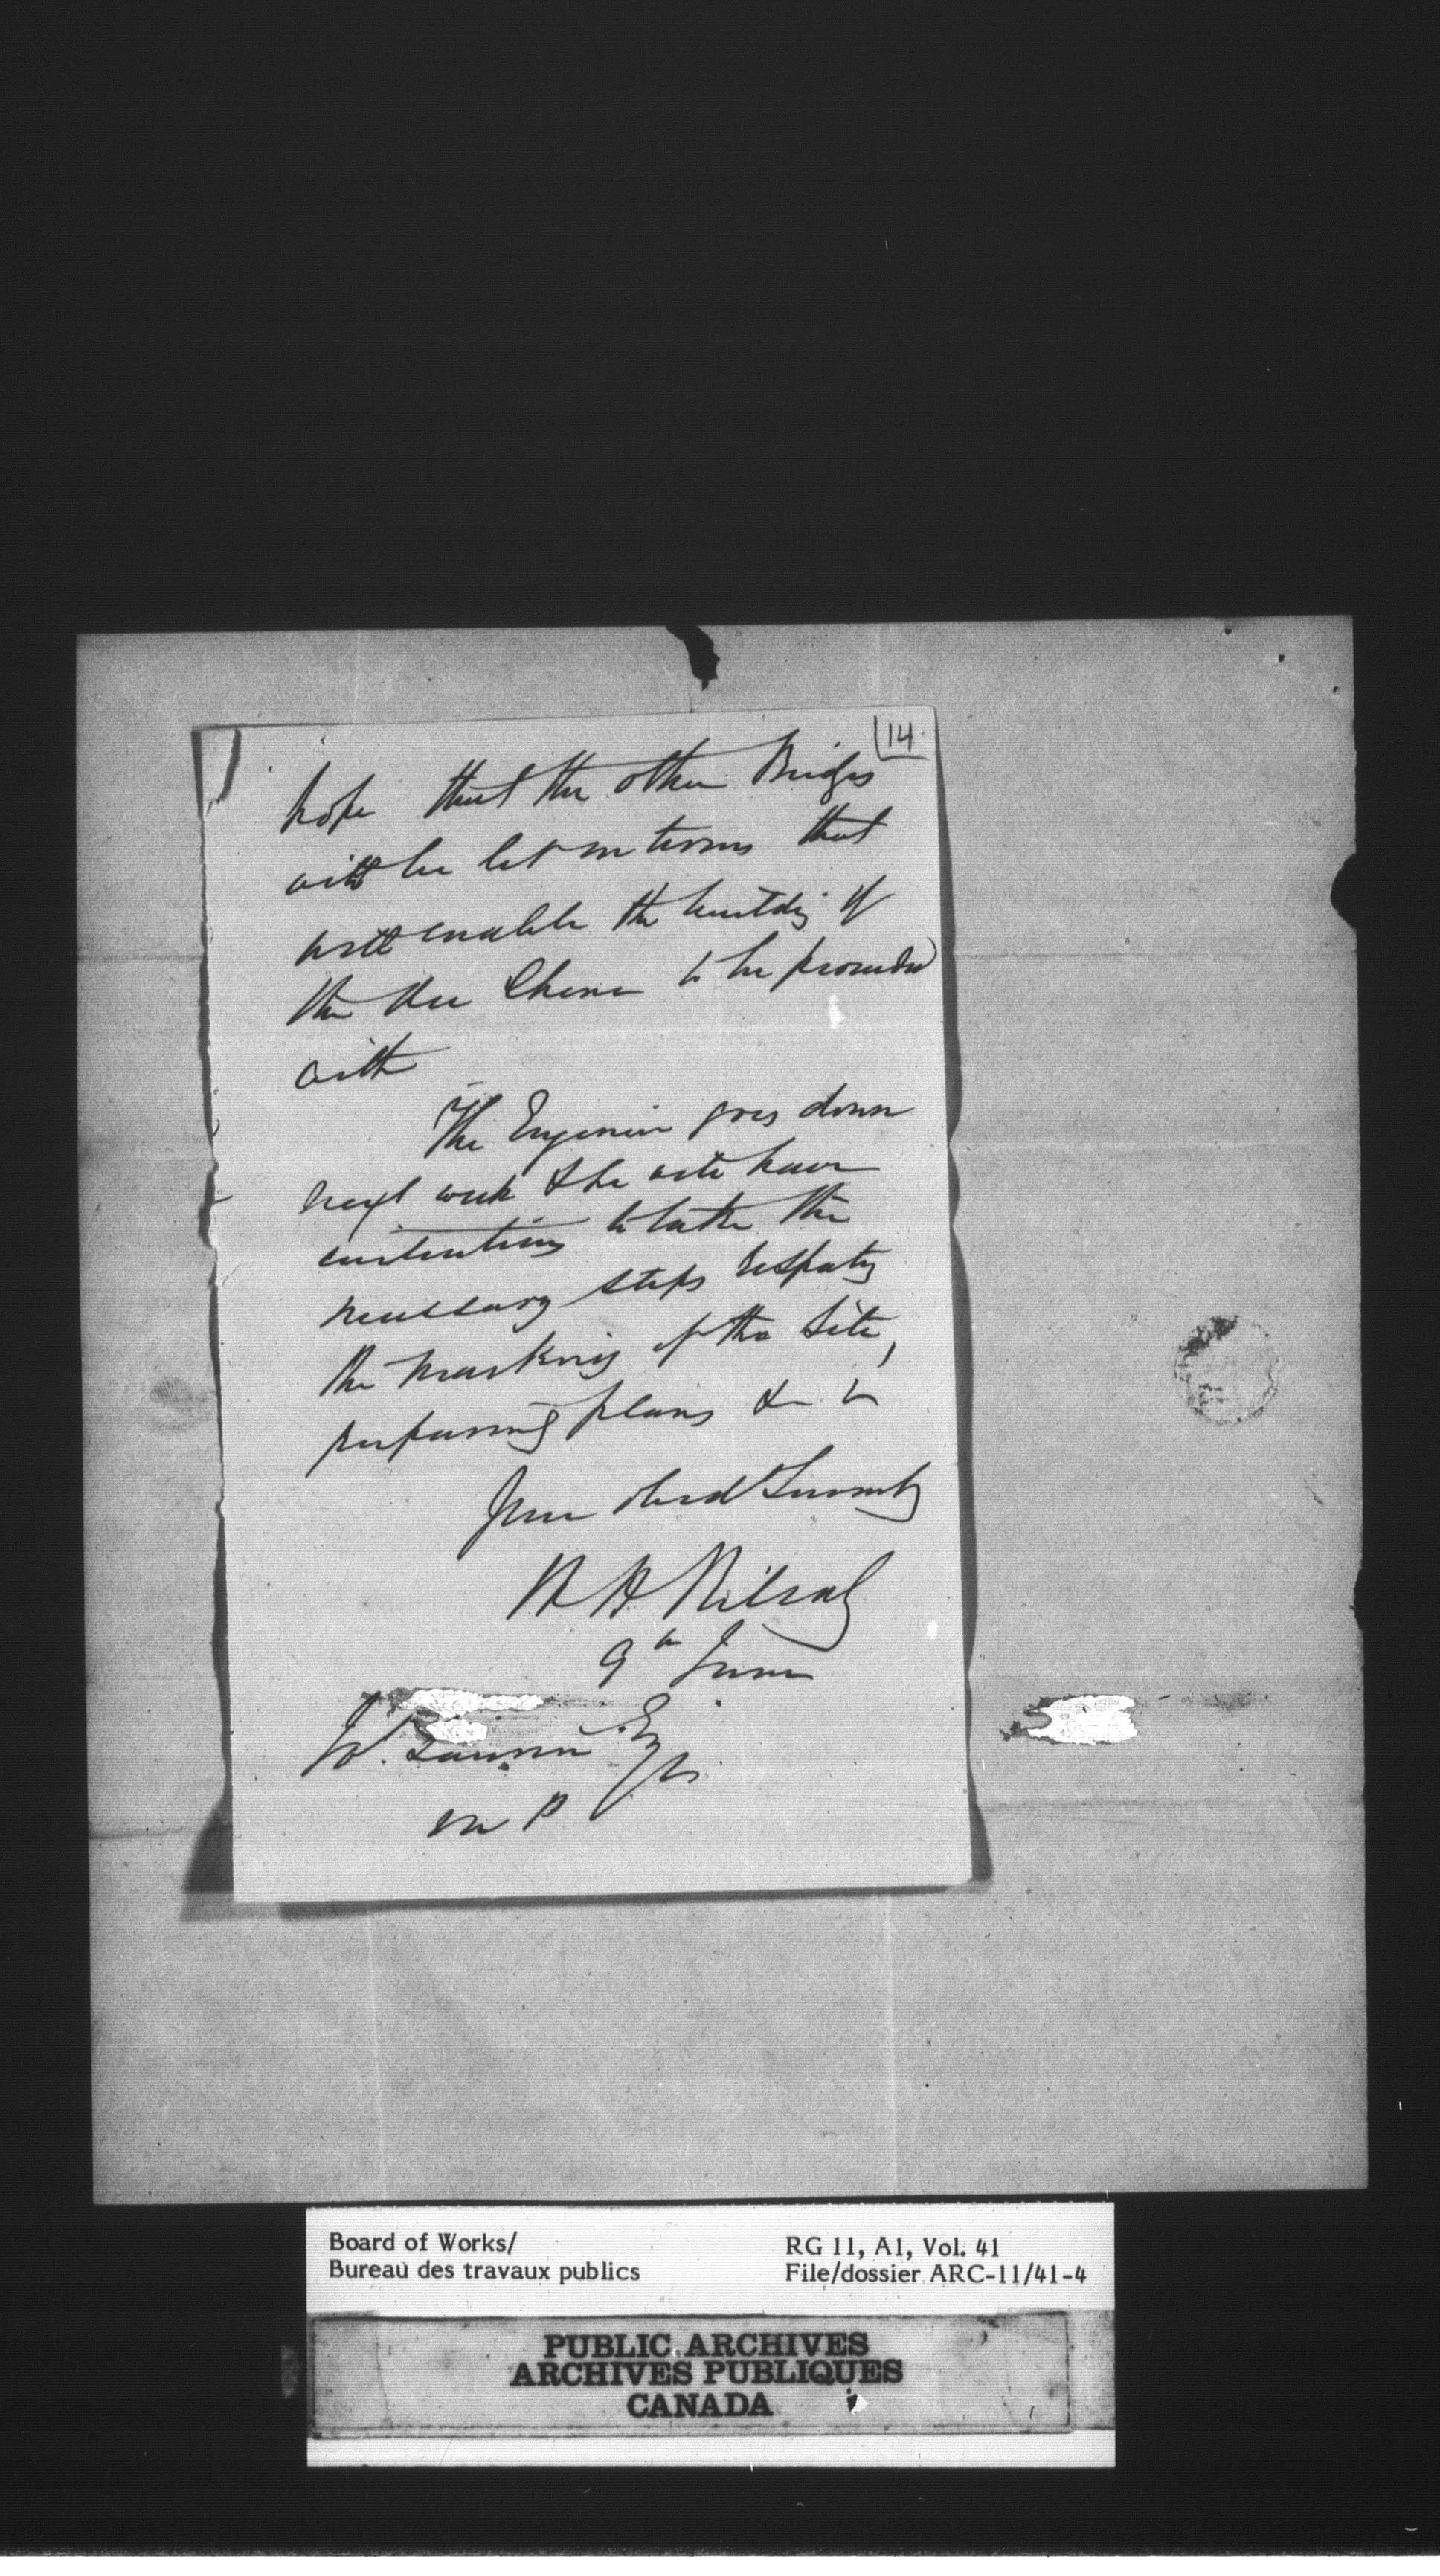 14
hope that the other Bridges
will be let on terms that
will enable the building of
the Du Chene to be proceeded
with
The Engineer goes down
next week & he will have
instructions to take the
necessary steps respecting
the marking of the Site,
preparing plans &c &c
Your obed Servant
H H Killaly
9th June
Esqr
M P
Board of Works/
Bureau des travaux publics
RG 11, A1, Vol. 41
File/dossier ARC-11/41-4
PUBLIC ARCHIVES
ARCHIVES PUBLIQUES
CANADA